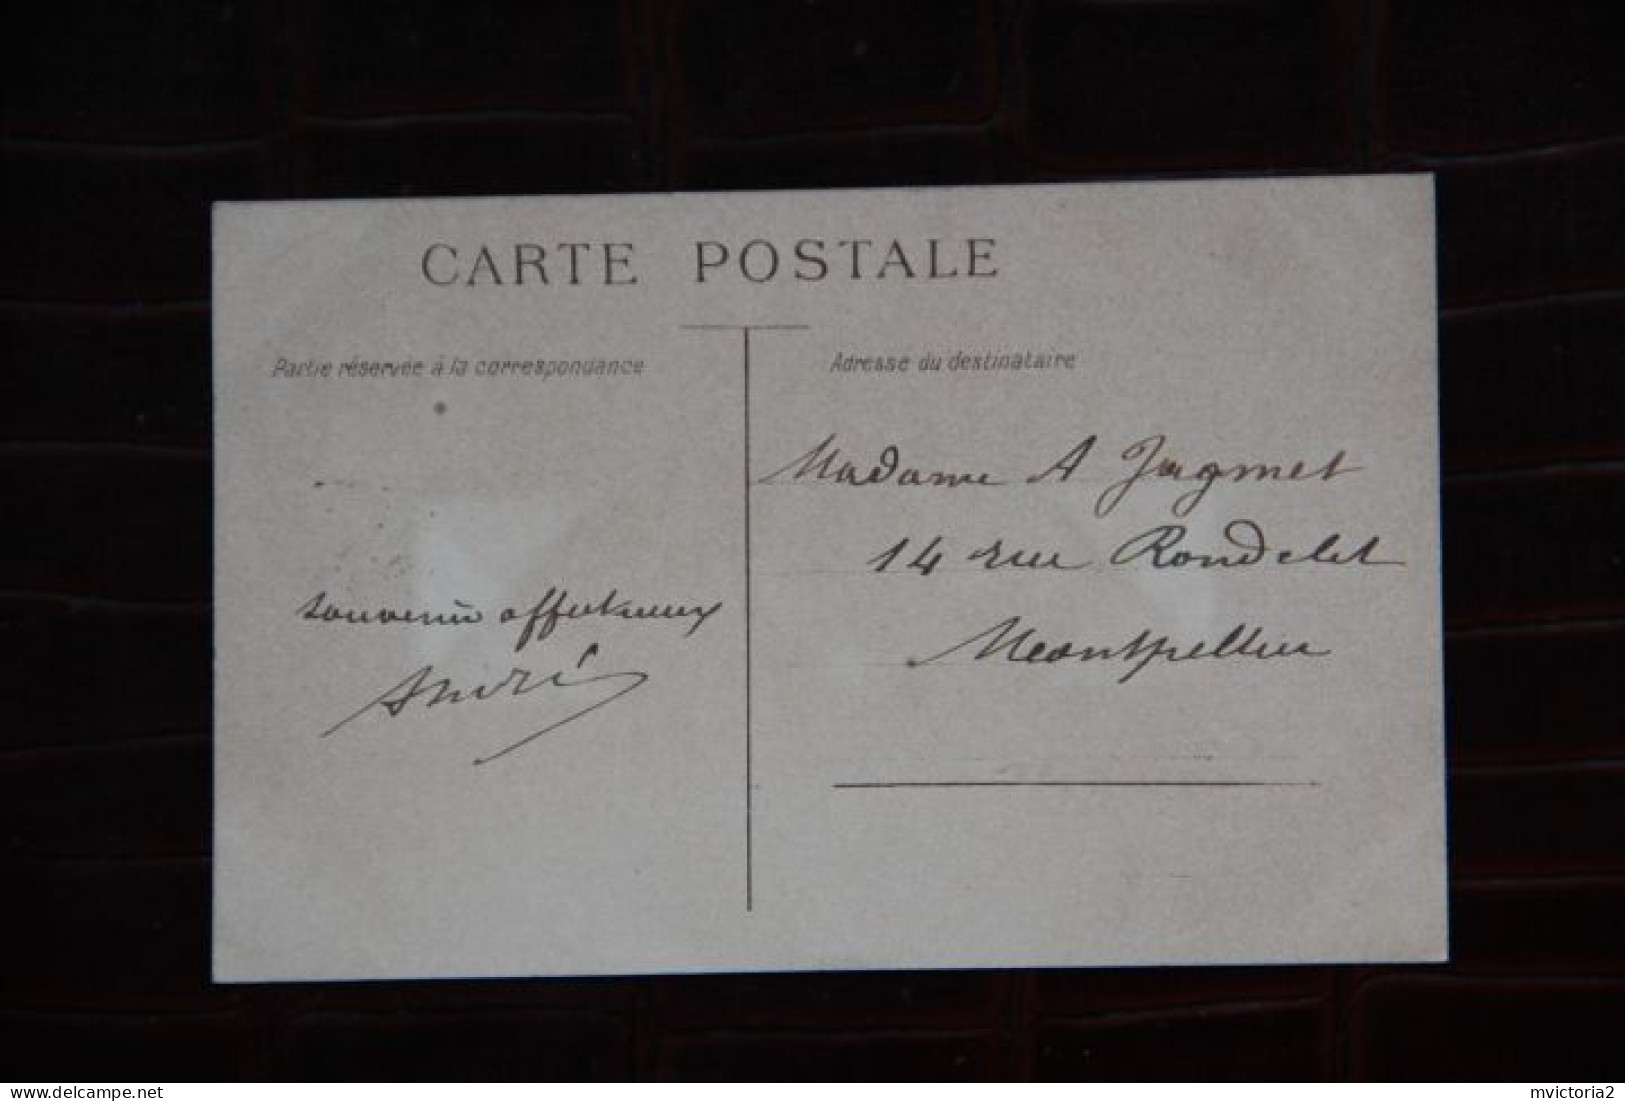 CARTE POSTALE
Partie réservée à la correspondance
Adresse du destinataire
Madame A Jagmet
14 rue Rondelet
Montpellier
Souvenir affectueux
André
delcampe.net
mvictoria2